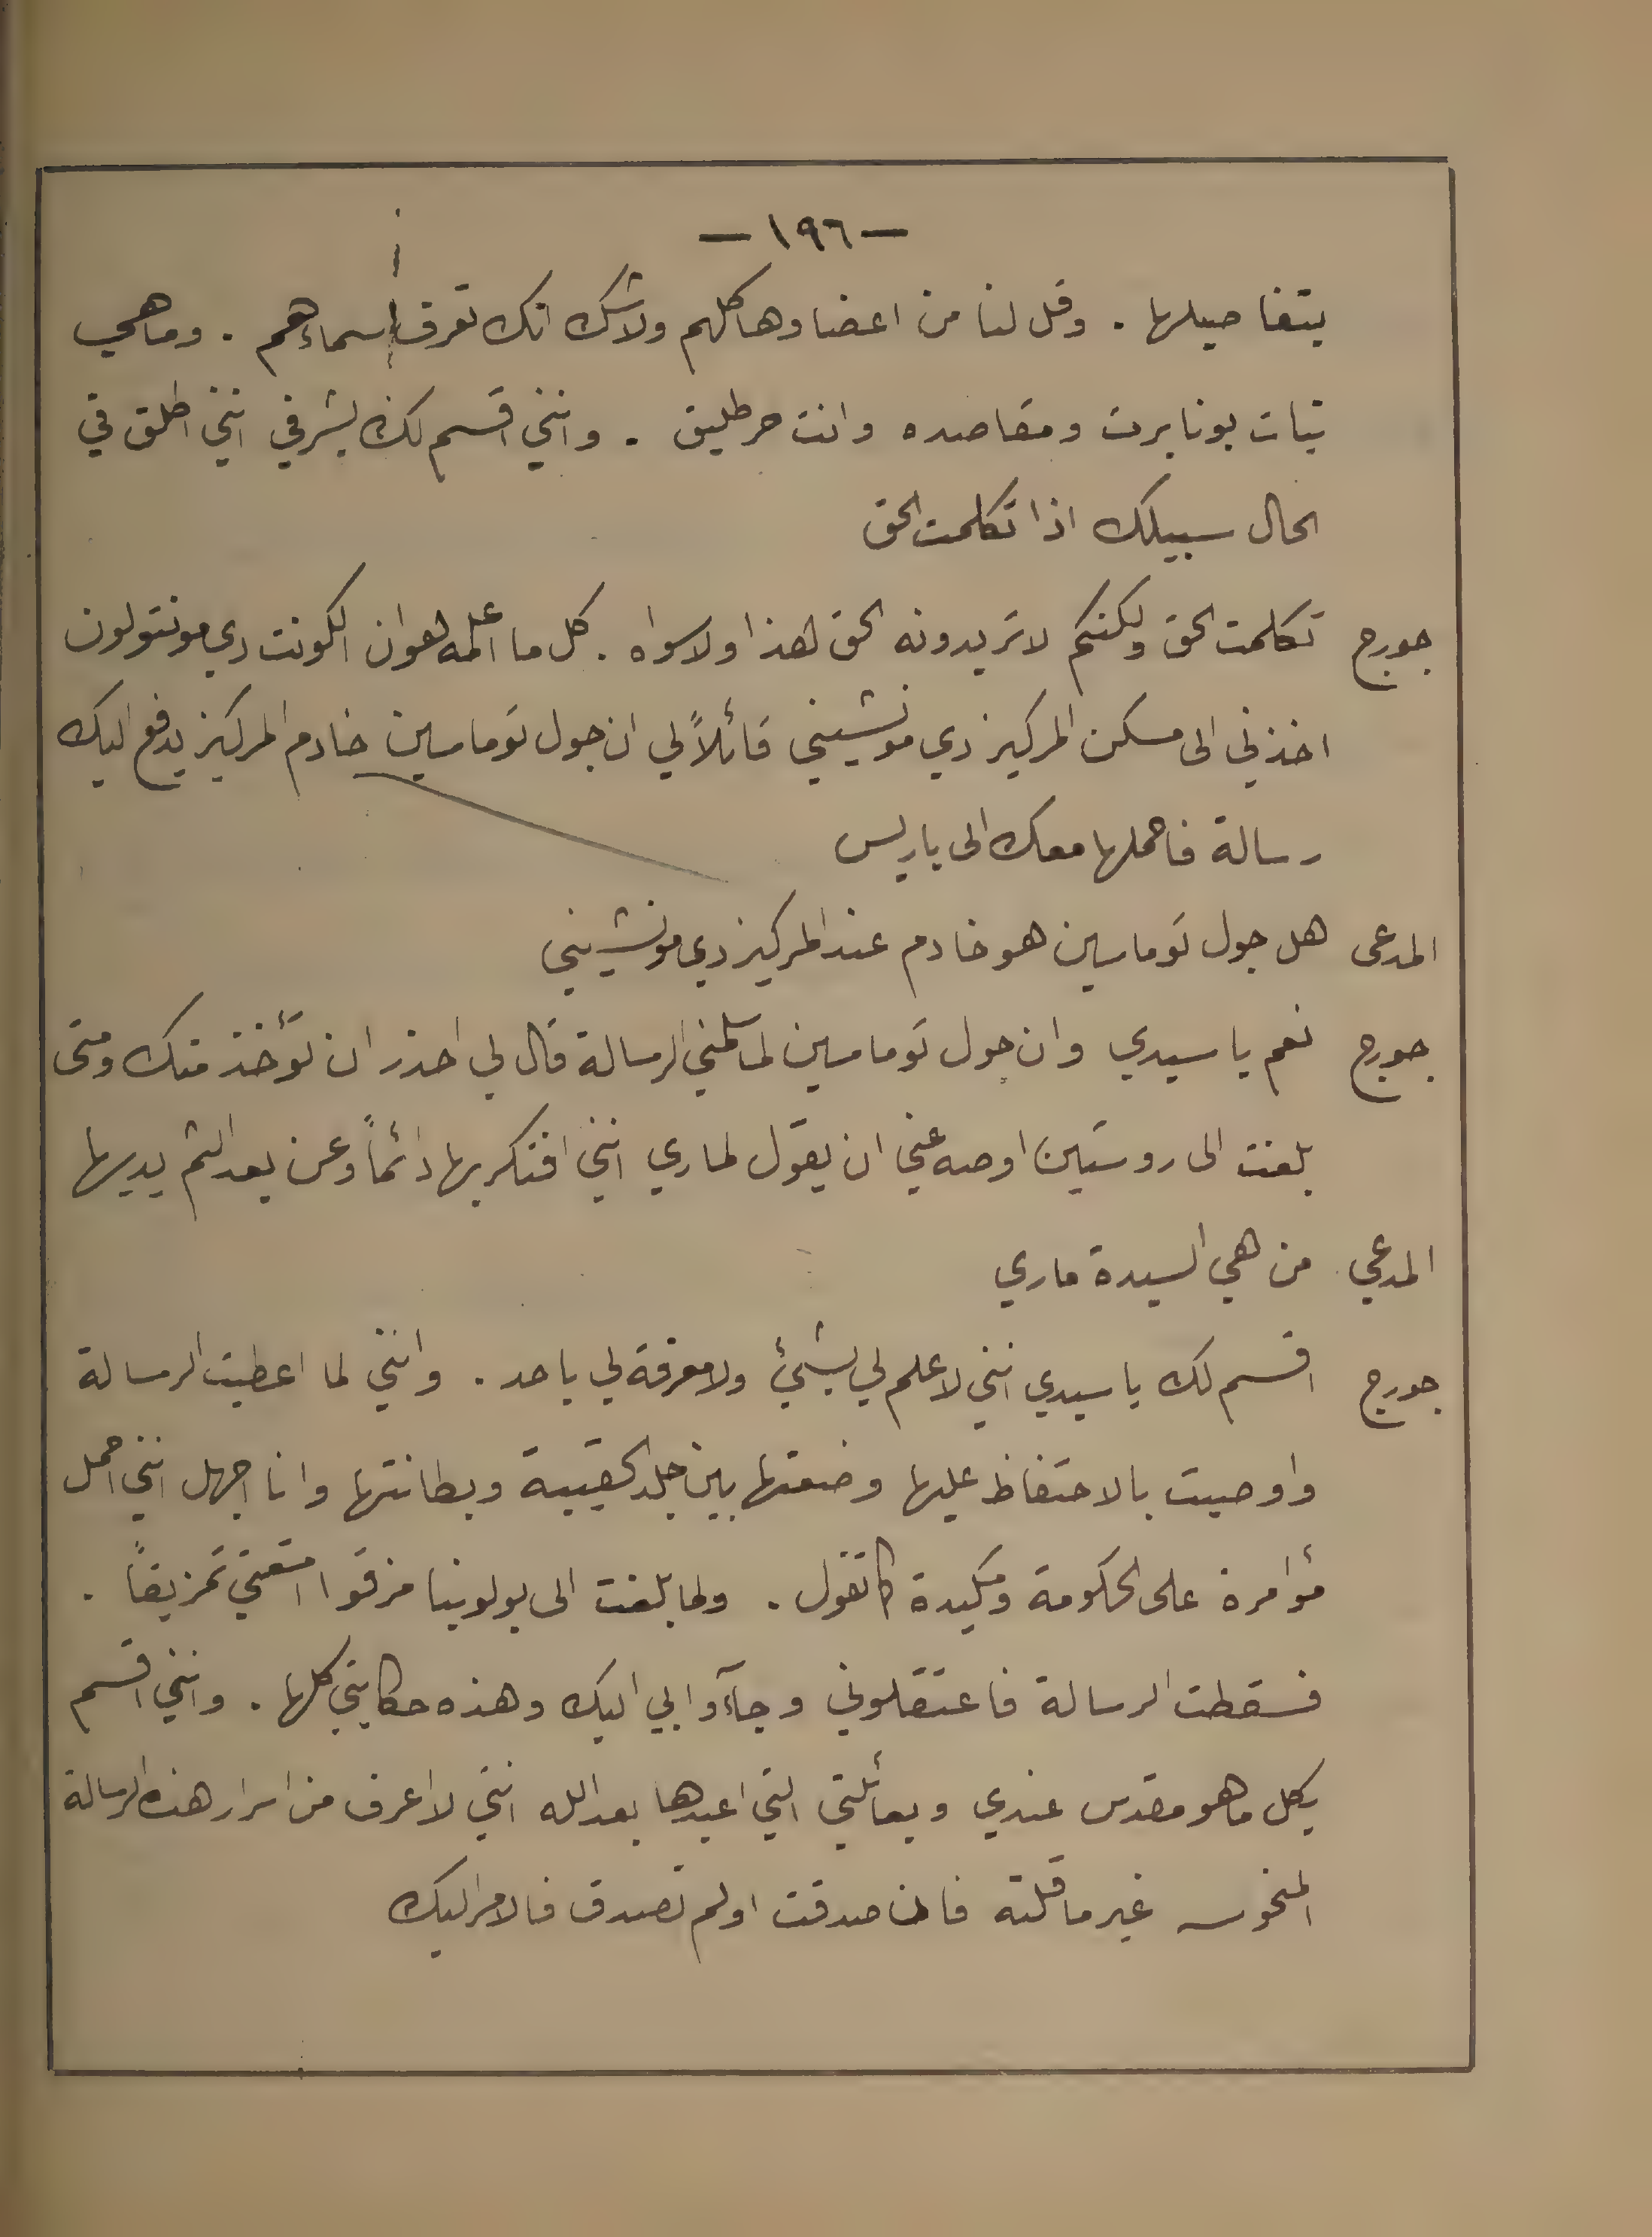 — ١٩٦ —
بتفاصيلها . وقل لنا من اعضاوها كلهم ولا شك انك تعرف اسماءهم . وما هي
نيات بونابرت ومقاصده وانت حر طليق . وانني اقسم لك بشرفي انني اطلق في
الحال سبيلك اذا تكلمت الحق
جورج تكلمت الحق ولكنكم لا تريدونه الحق لهذا ولا سواه . كل ما اعلمه هو ان الكونت دي مونتولون
اخذني الى مسكن المركيز دي مونشيني قائلاً لي ان جول توماسين خادم المركيز يدفع اليك
رسالة فاحملها معك الى باريس
المدعى هل جول توماسين هو خادم عند المركيز دي مونشيني
جورج نعم يا سيدي وان جول توماسين لما سلمني الرسالة قال لي احذر ان تؤخذ منك ومتى
بلغت الى روستين اوصه عني ان يقول لماري انني افتكر بها دائماً وعن بعد الثم يديها
المدعي من هي السيدة ماري
جورج اقسم لك يا سيدي انني لا علم لي بشيئ ولا معرفة لي باحد . وانني لما اعطيت الرسالة
واوصيت بالاحتفاظ عليها وضعتها بين جلد الحقيبة وبطانتها وانا اجهل انني احمل
مؤامرة على الحكومة ومكيدة كما تقول . ولما بلغت الى بولوينا مزقوا امتعتي تمزيقاً .
فسقطت الرسالة فاعتقلوني وجآوا بي اليك وهذه حكايتي كلها . وانني اقسم
بكل ما هو مقدس عندي وبعائلتي التي اعبدها بعد الله انني لا اعرف من اسرار هذه الرسالة
المنحوسه غير ما قلته فان صدقت او لم تصدق فالامر اليك